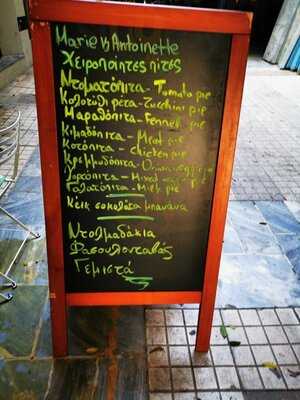 Marie & Antoinette
Χειροποίητες πίτες
Ντοματόπιτα - Tomato pie
Κολοκύθι φέτα - Zucchini pie
Μαραθόπιτα - Fennel pie
Κιμαδόπιτα - Meat pie
Κοτόπιτα - chicken pie
Κρεμμυδόπιτα - Onion pie
Χορτόπιτα - Mixed pie
Γαλατόπιτα - Milk pie
Κέικ σοκολάτα μπανάνα
Ντολμαδάκια
Φασουλονταβάς
Γεμιστά